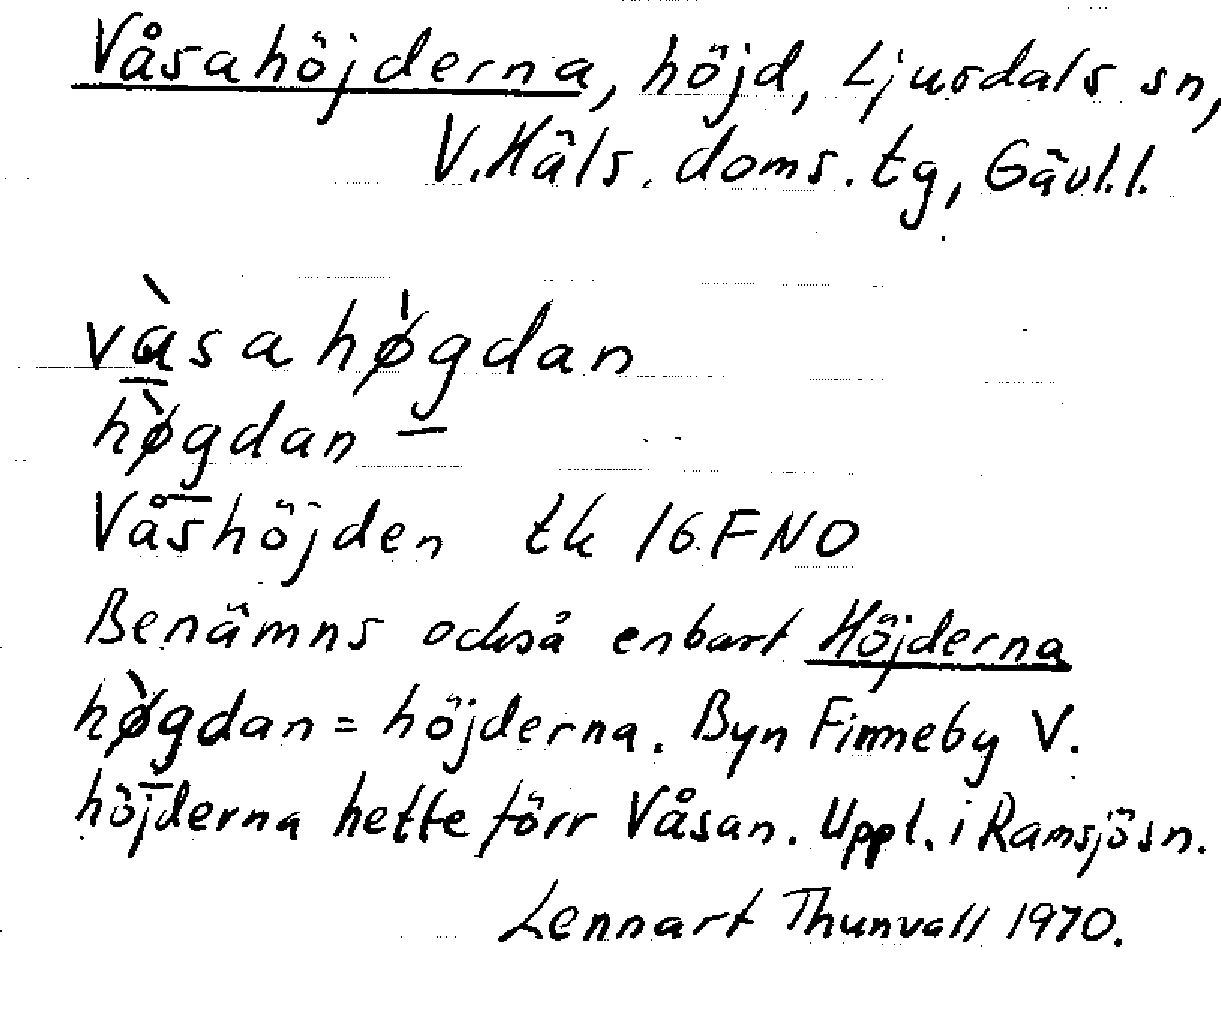 Våsahöjderna, höjd, Ljusdals sn,
V.Häls. doms.tg, Gävl.l.
vàsahøgdan
hø̀gdan –
Våshöjden tk 16FNO
Benämns också enbart Höjderna
hø̀gdan = höjderna. Byn Finneby V.
höjderna hette förr Våsan. Uppl. i Ramsjö sn.
Lennart Thunvall 1970.